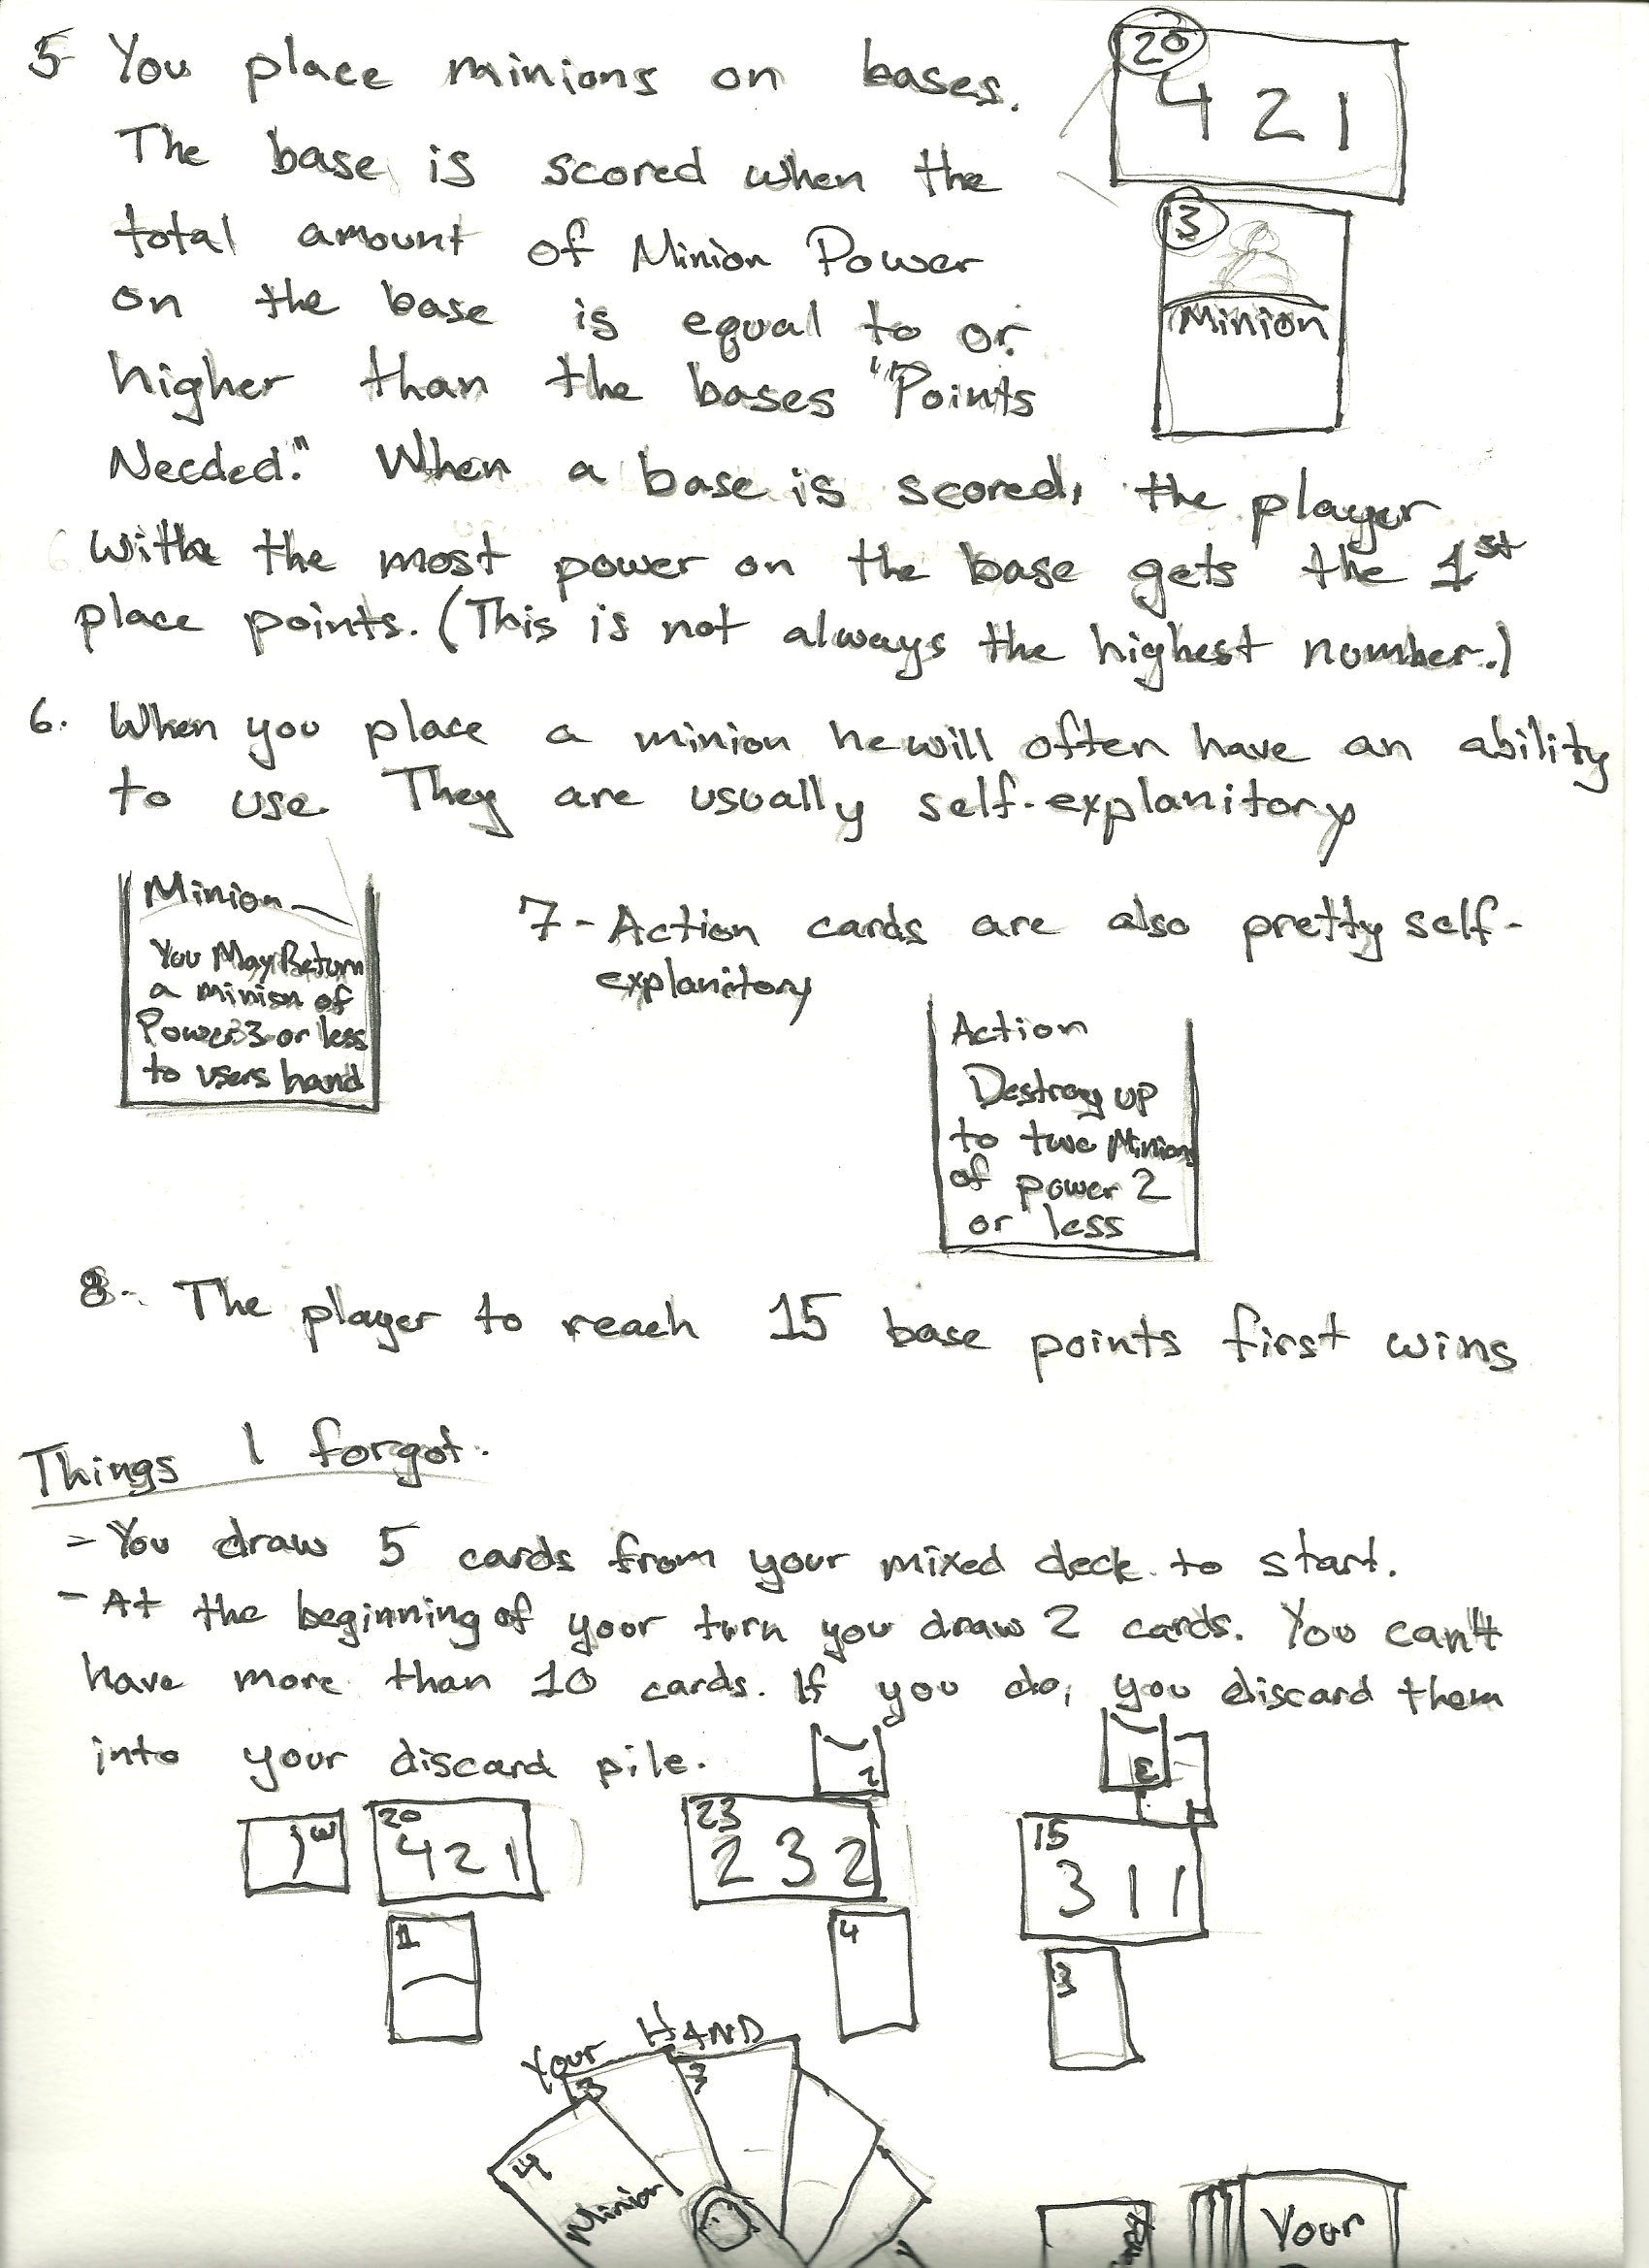 5- You place minions on bases.
The base is scored when the
total amount of Minion Power
on the base is equal to or
higher than the bases "Points
Needed." When a base is scored, the player
With the most power on the base gets the 1st
place points. (This is not always the highest number.)
20
4 2 1
3
Minion
6. When you place a minion he will often have an ability
to use. They are usually self-explanitory
Minion
You May Return
a minion of
Power 3 or less
to users hand
7- Action cards are also pretty self-
explanitory
Action
Destroy up
to two Minions
of power 2
or less
8- The player to reach 15 base points first wins
Things I forgot.
- You draw 5 cards from your mixed deck to start.
- At the beginning of your turn you draw 2 cards. You can't
have more than 10 cards. If you do, you discard them
into your discard pile.
3
20
4 2 1
1
2
23
2 3 2
4
3
15
3 1 1
3
Your HAND
4
Minion
3
3
Your